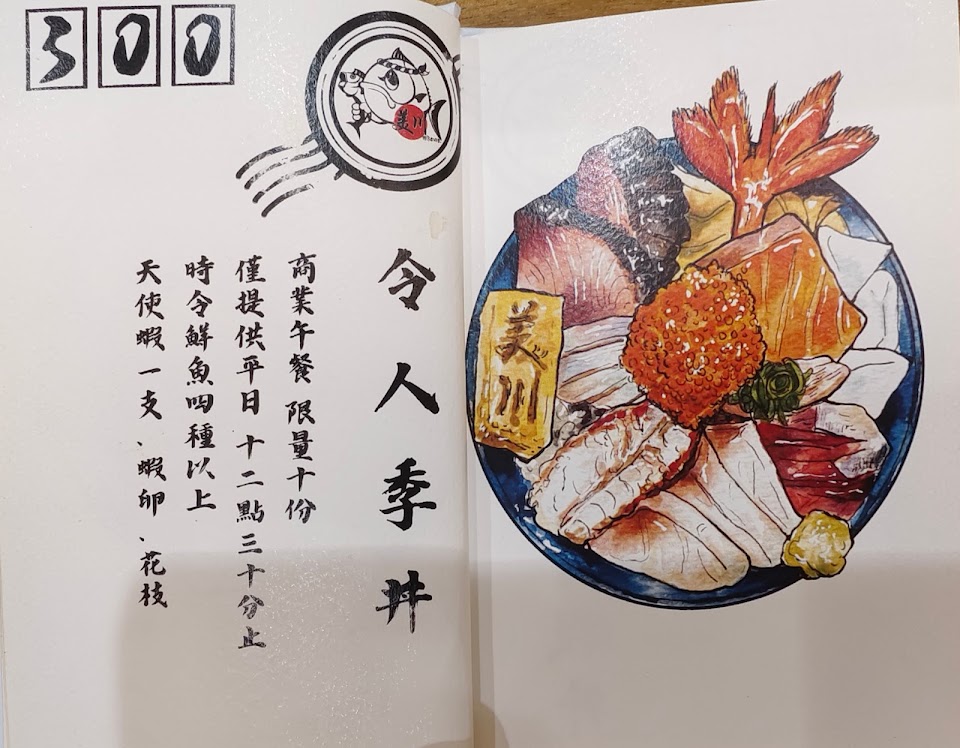 300
美川
令人季丼
商業午餐 限量十份
僅提供平日 十二點三十分止
時令鮮魚四種以上
天使蝦一支、蝦卵、花枝
美川